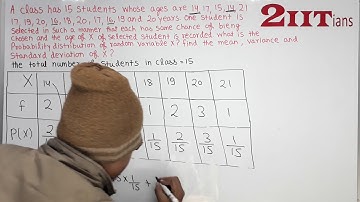 A class has 15 students whose ages are 14, 17, 15, 14, 21
2IITians
17, 19, 20, 16, 18, 20, 17, 16, 19 and 20 years one student is
Selected in such a manner that each has same chance of bieng
chosen and the age of X of selected student is recorded what is the
Probability distribution of random variable X? Find the mean, variance and
Standard deviation of X?
the total number of students in class = 15
X 14 18 19 20 21
f 2 1 2 3 1
P(X) 2 1/15 2/15 3/15 1/15
× 1/15 +